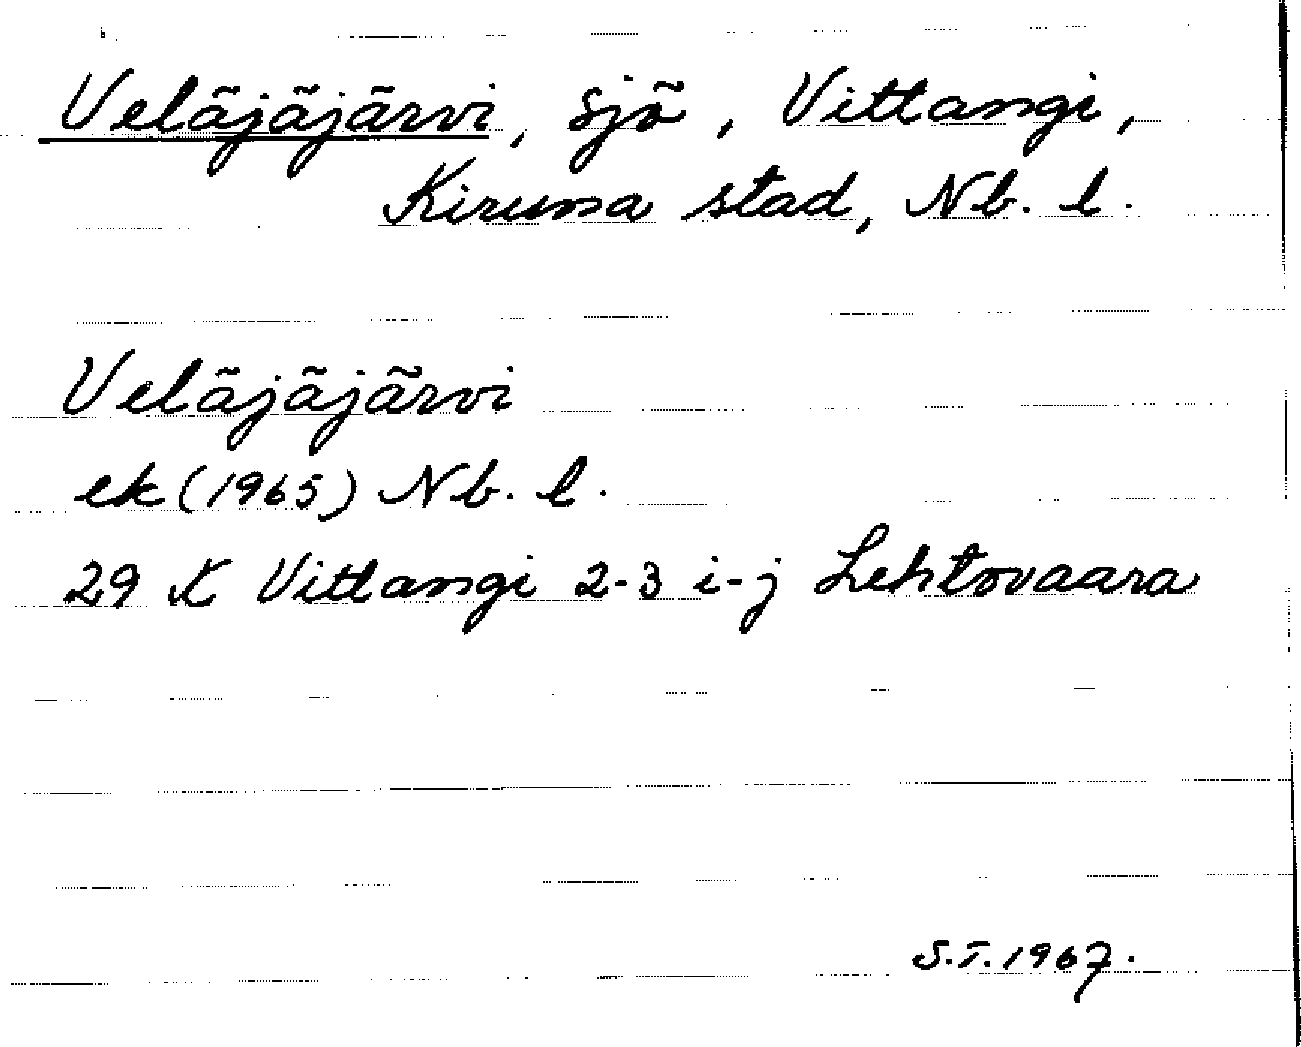 Veläjäjärvi, sjö, Vittangi,
Kiruna stad, Nb. l.
Veläjäjärvi
ek (1965) Nb. l.
29 K Vittangi 2-3 i-j Lehtovaara
S.T. 1967.